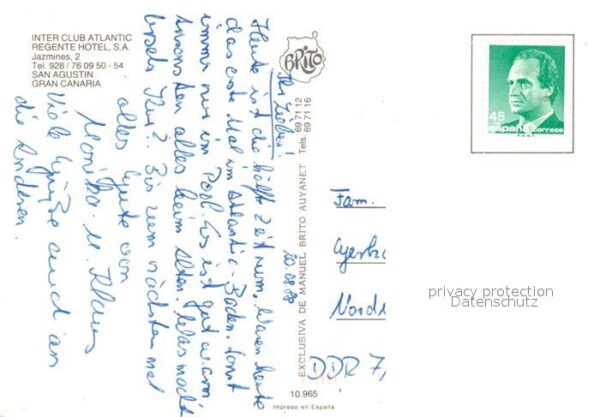 INTER CLUB ATLANTIC
REGENTE HOTEL, S.A.
Jazmines, 2
Tel. 928 / 76 09 50 - 54
SAN AGUSTIN
GRAN CANARIA
BRITO
Tels. 69 71 12
69 71 16
EXCLUSIVA DE MANUEL BRITO AUYANET
10.965
Impreso en España
45
españa correos
20.08.88
Ihr Lieben!
Heute ist die halbe Zeit rum. Waren heute
das erste Mal im Atlantic-Baden. Sonst
immer nur im Pool. Es ist gut warm
ansonsten alles beim Alten. Was macht
Kur? Bis zum nächsten mal
alles Gute von
Monika u. Klaus
Viele Grüße auch an
die Anderen.
Fam.
Nords
DDR 7,
privacy protection
Datenschutz